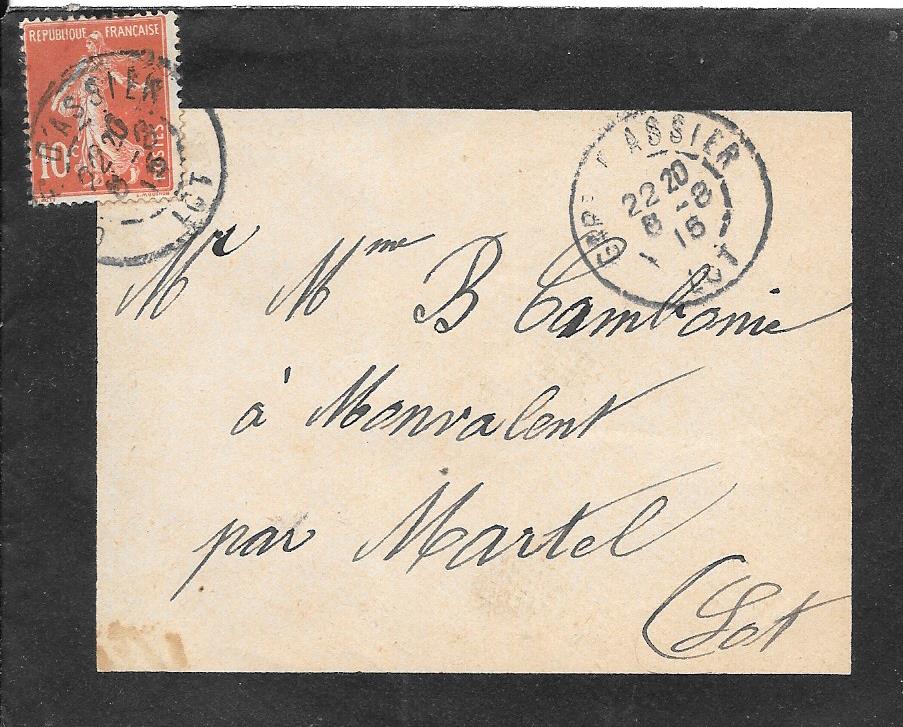 REPUBLIQUE FRANÇAISE
10
POSTES
D'ASSIER
20
LOT
GARE D'ASSIER
22 20
8 -8
16
LOT
Mr Mme B Cambonie
à Monvalent
par Martel
(Lot